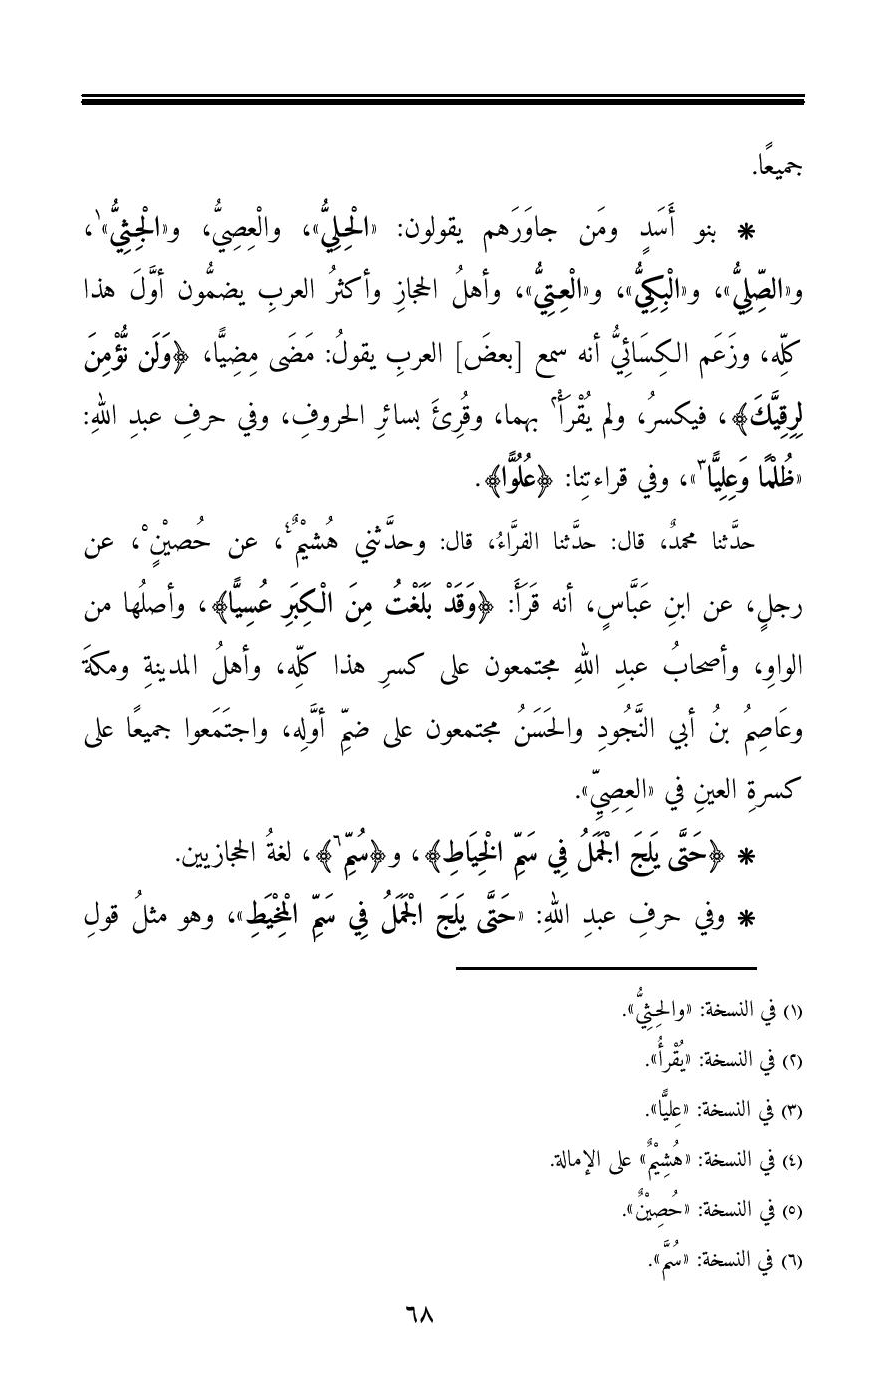 جميعًا.
* بنو أَسَدٍ ومَن جاوَرَهم يقولون: «الْحِلِيُّ»، والْعِصِيُّ، و«الْجِثِيُّ»١،
و«الصِّلِيُّ»، و«الْبِكِيُّ»، و«الْعِتِيُّ»، وأهلُ الحجازِ وأكثرُ العربِ يضمُّون أوَّلَ هذا
كلِّه، وزَعَم الكِسَائِيُّ أنه سمع [بعضَ] العربِ يقولُ: مَضَى مِضِيًّا، ﴿وَلَن نُّؤْمِنَ
لِرِقِيِّكَ﴾، فيكسرُ، ولم يُقْرَأْ٢ بهما، وقُرِئَ بسائرِ الحروفِ، وفي حرفِ عبدِ اللهِ:
«ظُلْمًا وَعِلِيًّا٣»، وفي قراءتِنا: ﴿عُلُوًّا﴾.
حدَّثنا محمدٌ، قال: حدَّثنا الفرَّاءُ، قال: وحدَّثني هُشيْمٌ٤، عن حُصيْنٍ٥، عن
رجلٍ، عن ابنِ عَبَّاسٍ، أنه قَرَأَ: ﴿وَقَدْ بَلَغْتُ مِنَ الْكِبَرِ عُسِيًّا﴾، وأصلُها من
الواوِ، وأصحابُ عبدِ اللهِ مجتمعون على كسرِ هذا كلِّه، وأهلُ المدينةِ ومكةَ
وعَاصِمُ بنُ أبي النَّجُودِ والحَسَنُ مجتمعون على ضمِّ أوَّلِه، واجتَمَعوا جميعًا على
كسرةِ العينِ في «العِصِيِّ».
* ﴿حَتَّى يَلِجَ الْجَمَلُ فِي سَمِّ الْخِيَاطِ﴾، و﴿سُمِّ٦﴾، لغةُ الحجازيين.
* وفي حرفِ عبدِ اللهِ: «حَتَّى يَلِجَ الْجَمَلُ فِي سَمِّ الْمِخْيَطِ»، وهو مثلُ قولِ
(١) في النسخة: «والحِثِيُّ».
(٢) في النسخة: «يُقْرأُ».
(٣) في النسخة: «عِليًّا».
(٤) في النسخة: «هُشِيْمٌ» على الإمالة.
(٥) في النسخة: «حُصِيْنٌ».
(٦) في النسخة: «سُمَّ».
٦٨